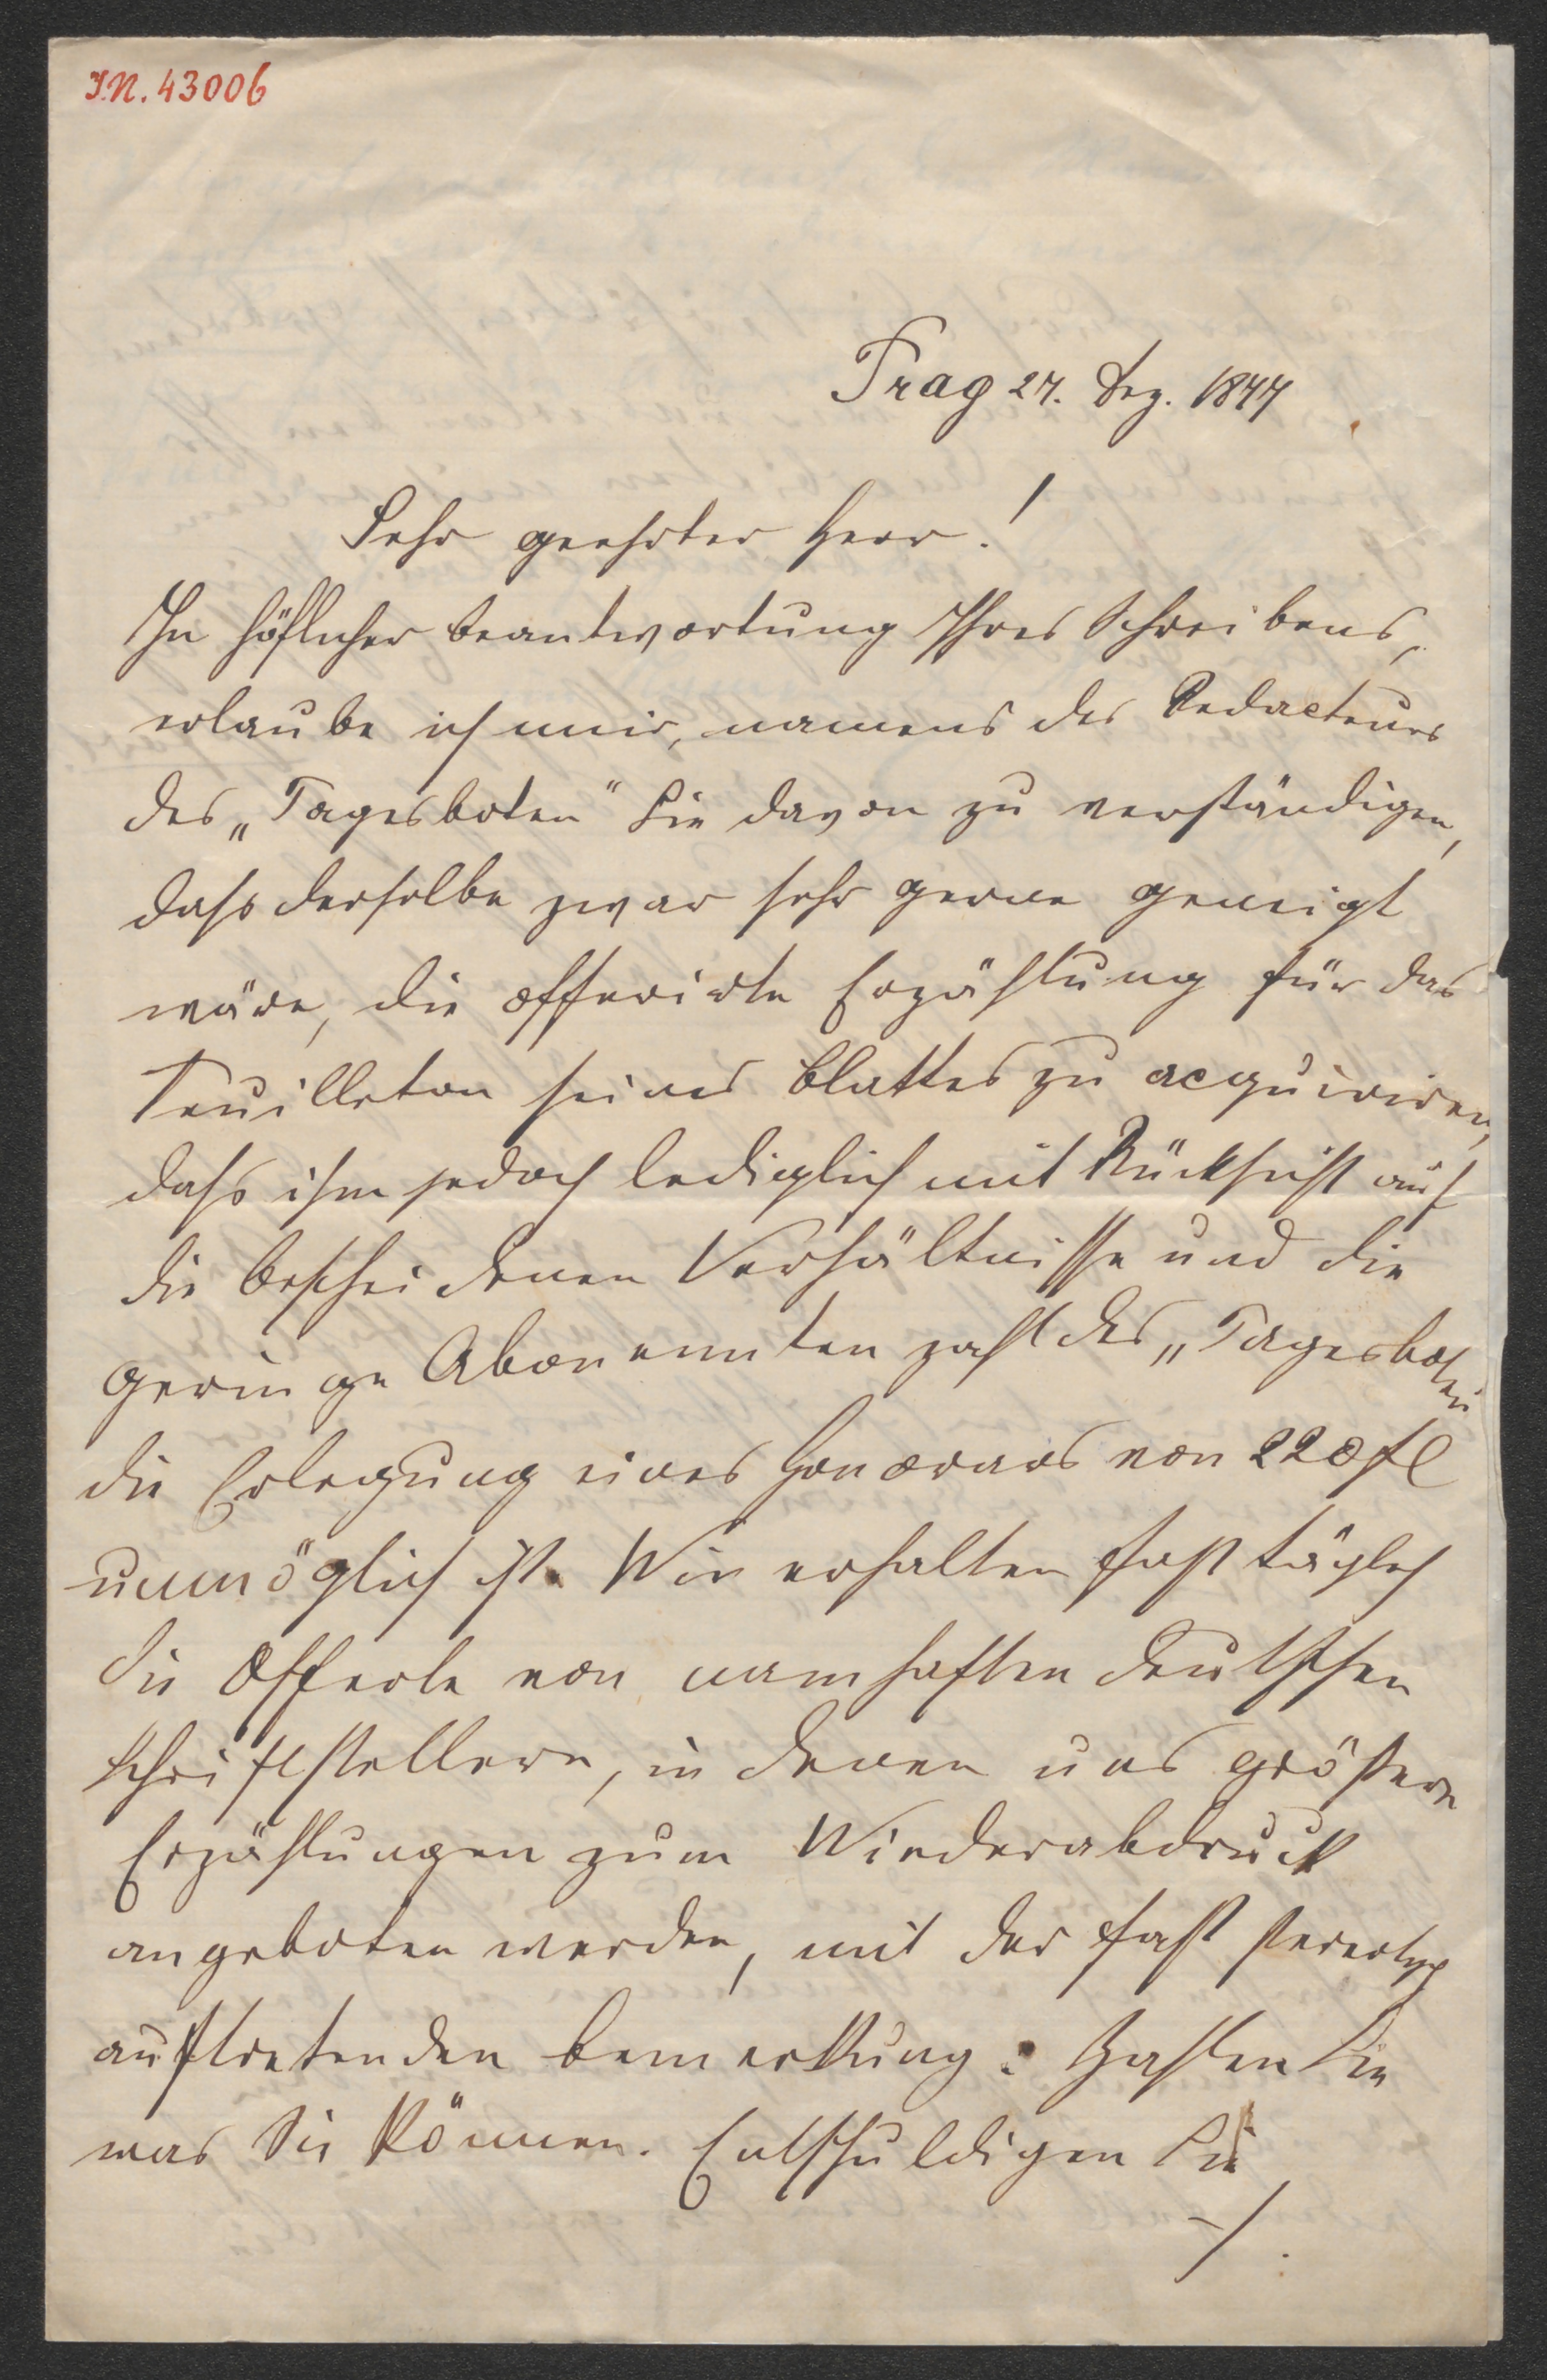 I.N. 43006
Prag 27. Dez. 1877
Sehr geehrter Herr!
In höflicher Beantwortung Ihres Schreibens,
erlaube ich mir, namens des Redacteurs
des „Tagesboten“ Sie davon zu verständigen,
dass derselbe zwar sehr gerne geneigt
wäre, die offerirte Erzählung für das
Feuilleton seines Blattes zu acquiriren,
dass ihm jedoch lediglich mit Rücksicht auf
die bescheidenen Verhältnisse und die
geringe Abonennten zahl des „Tagesboten
die Erlegung eines Honorars von 220 fl
unmöglich ist. Wir erhalten fast täglich
die Offerte von namhaften deutschen
Schriftstellern, in denen uns größere
Erzählungen zum Wiederabdruck
angeboten werden, mit der fast stereotyp
auftretenden Bemerkung: Zahlen Sie
was Sie können. Entschuldigen Sie